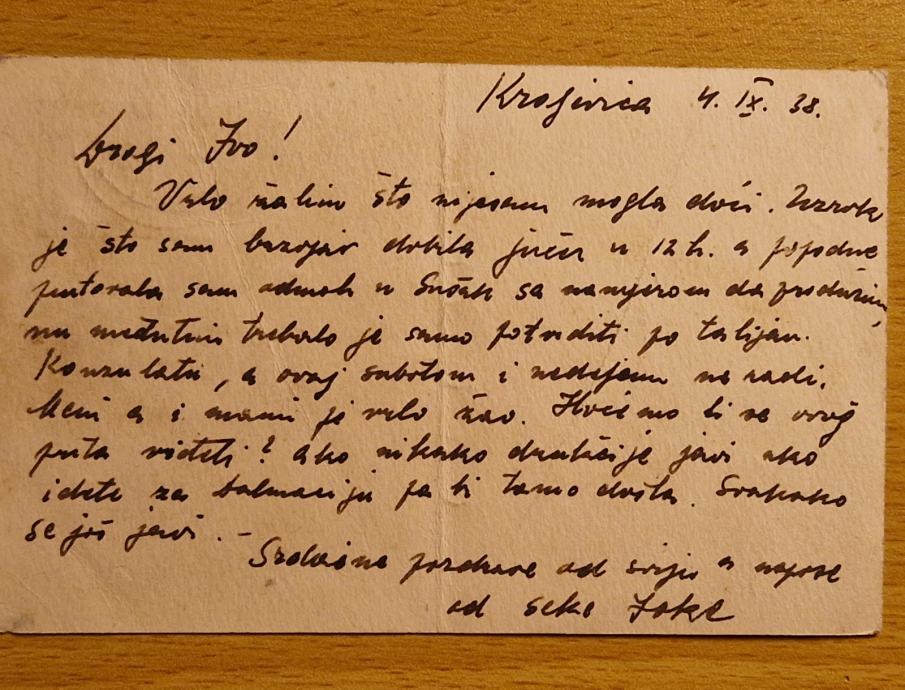 Kraljevica 4. IX. 38.
Dragi Ivo!
Vrlo žalim što nijesam mogla doći. Uzrok
je što sam brzojav dobila jučer u 12 h. a popodne
putovala sam odmah u Sušak sa namjerom da produžim,
no međutim trebalo je samo potvrditi po talijan.
Konzulatu, a ovaj subotom i nedjeljom ne radi.
Meni a i mami je vrlo žao. Hoćemo li se ovog
puta vidjeti? Ako nikako drukčije javi ako
idete za Dalmaciju pa bi tamo došla. Svakako
se još javi. –
Srdačne pozdrave od sviju a napose
od seke